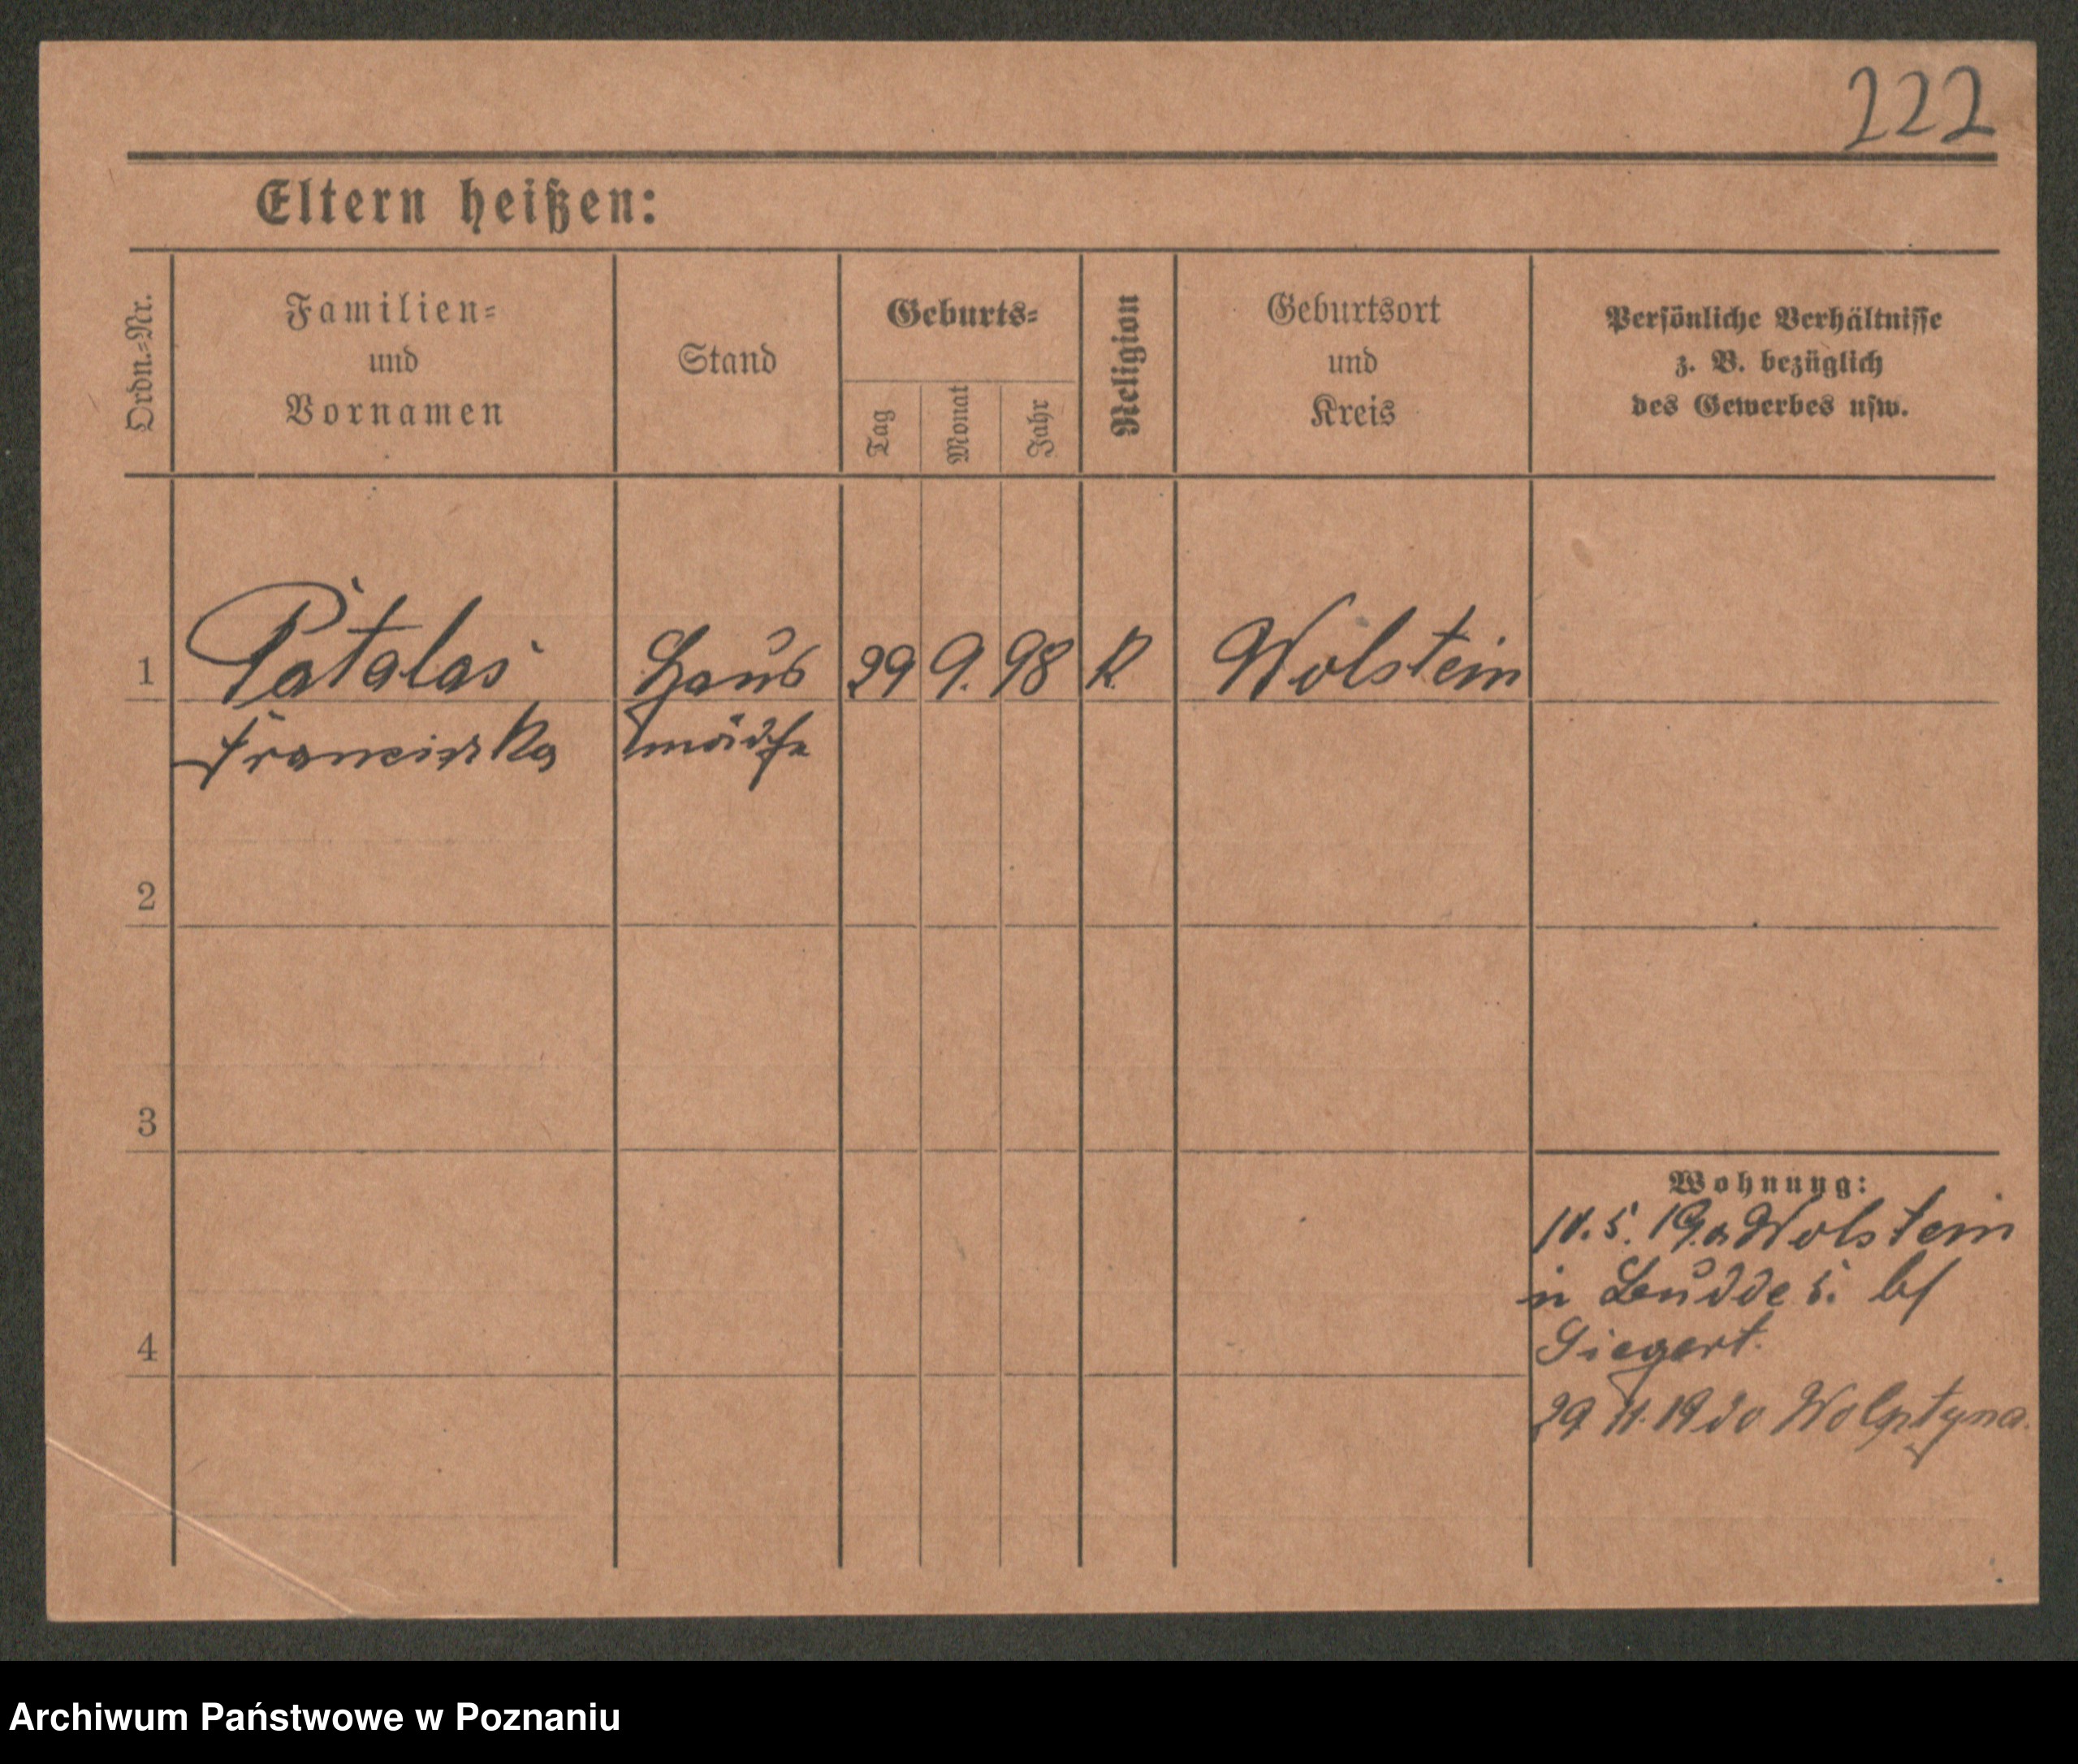 222
Eltern heißen:
Ordn.-Nr.
Familien-
und
Vornamen
Stand
Geburts-
Tag
Monat
Jahr
Religion
Geburtsort
und
Kreis
Persönliche Verhältnisse
z. B. bezüglich
des Gewerbes usw.
1
Patalas
Haus
29
9.
98
K
Wolstein
Franciska
2
3
4
Wohnung:
5. 19 Wolstein
in Budde 5. bf
Siegert.
29 11. 19 do
Archiwum Państwowe w Poznaniu